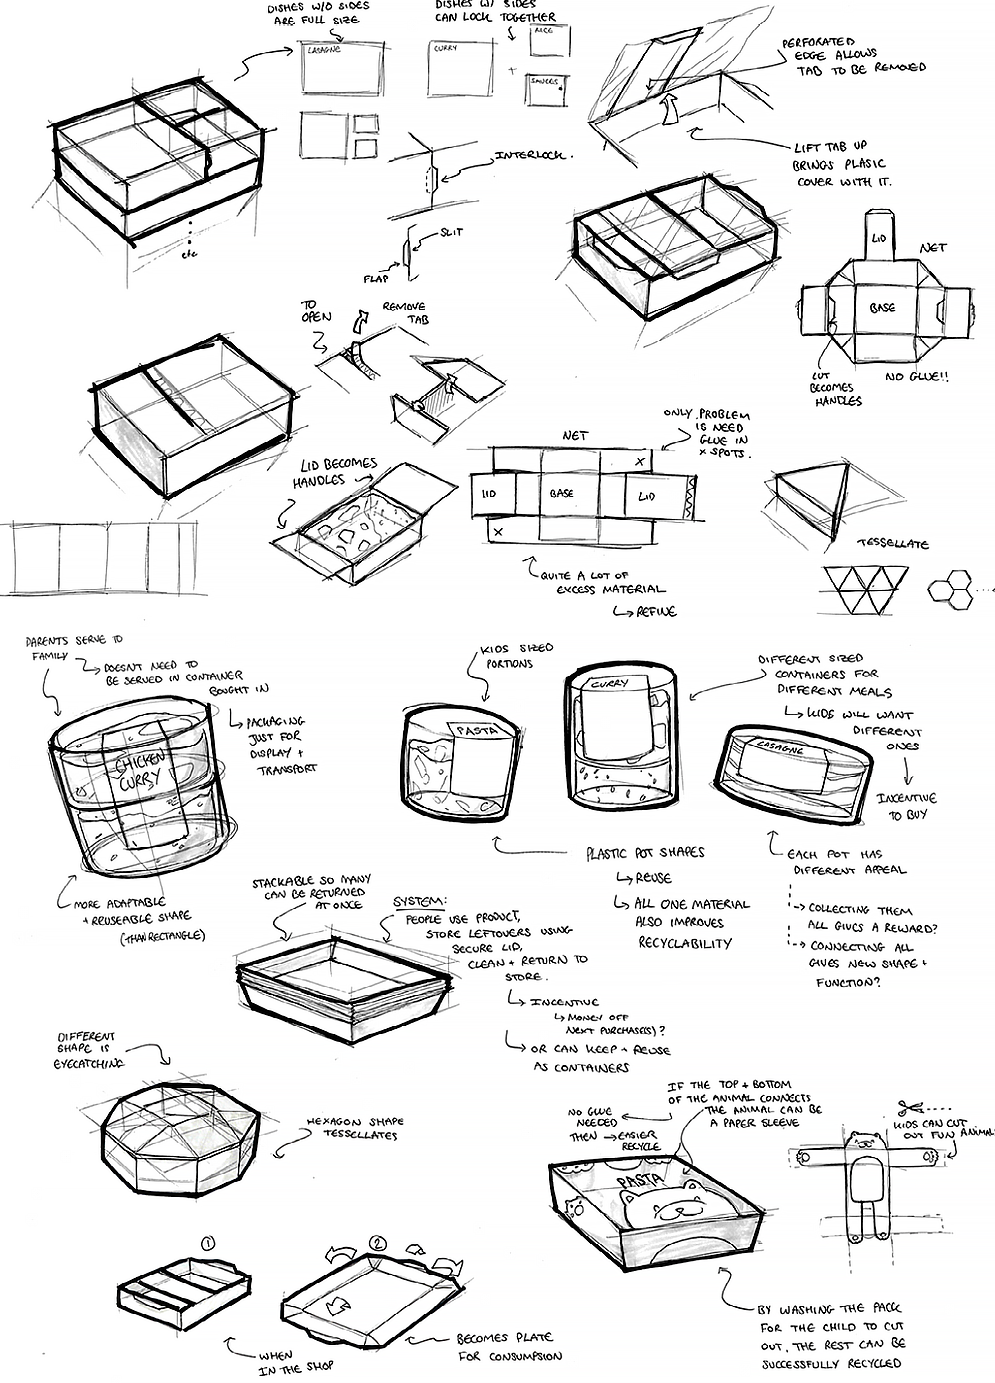 DISHES W/O SIDES
ARE FULL SIZE
LASAGNE
DISHES W/ SIDES
CAN LOCK TOGETHER
CURRY
RICE
+
SAUCES
PERFORATED
EDGE ALLOWS
TAB TO BE REMOVED
INTERLOCK.
LIFT TAB UP
BRINGS PLASIC
COVER WITH IT.
etc
SLIT
FLAP
LID
NET
BASE
CUT
BECOMES
HANDLES
NO GLUE!!
TO
OPEN
REMOVE
TAB
LID BECOMES
HANDLES
NET
LID
BASE
LID
X
X
ONLY PROBLEM
IS NEED
GLUE IN
X SPOTS.
QUITE A LOT OF
EXCESS MATERIAL
REFINE
TESSELLATE
PARENTS SERVE TO
FAMILY
DOESNT NEED TO
BE SERVED IN CONTAINER
BOUGHT IN
PACKAGING
JUST FOR
DISPLAY +
TRANSPORT
CHICKEN
CURRY
MORE ADAPTABLE
+ REUSEABLE SHAPE
(THAN RECTANGLE)
KIDS SIZED
PORTIONS
PASTA
CURRY
LASAGNE
DIFFERENT SIZED
CONTAINERS FOR
DIFFERENT MEALS
KIDS WILL WANT
DIFFERENT
ONES
INCENTIVE
TO BUY
PLASTIC POT SHAPES
REUSE
ALL ONE MATERIAL
ALSO IMPROVES
RECYCLABILITY
EACH POT HAS
DIFFERENT APPEAL
COLLECTING THEM
ALL GIVES A REWARD?
CONNECTING ALL
GIVES NEW SHAPE +
FUNCTION?
STACKABLE SO MANY
CAN BE RETURNED
AT ONCE
SYSTEM:
PEOPLE USE PRODUCT,
STORE LEFTOVERS USING
SECURE LID,
CLEAN + RETURN TO
STORE.
INCENTIVE
MONEY OFF
NEXT PURCHASE(S)?
OR CAN KEEP + REUSE
AS CONTAINERS
DIFFERENT
SHAPE IS
EYECATCHING
HEXAGON SHAPE
TESSELLATES
IF THE TOP + BOTTOM
OF THE ANIMAL CONNECTS
THE ANIMAL CAN BE
A PAPER SLEEVE
NO GLUE
NEEDED
THEN → EASIER
RECYCLE
PASTA
KIDS CAN CUT
OUT FUN ANIMAL
BY WASHING THE PACK
FOR THE CHILD TO CUT
OUT, THE REST CAN BE
SUCCESSFULLY RECYCLED
1
2
WHEN
IN THE SHOP
BECOMES PLATE
FOR CONSUMPSION